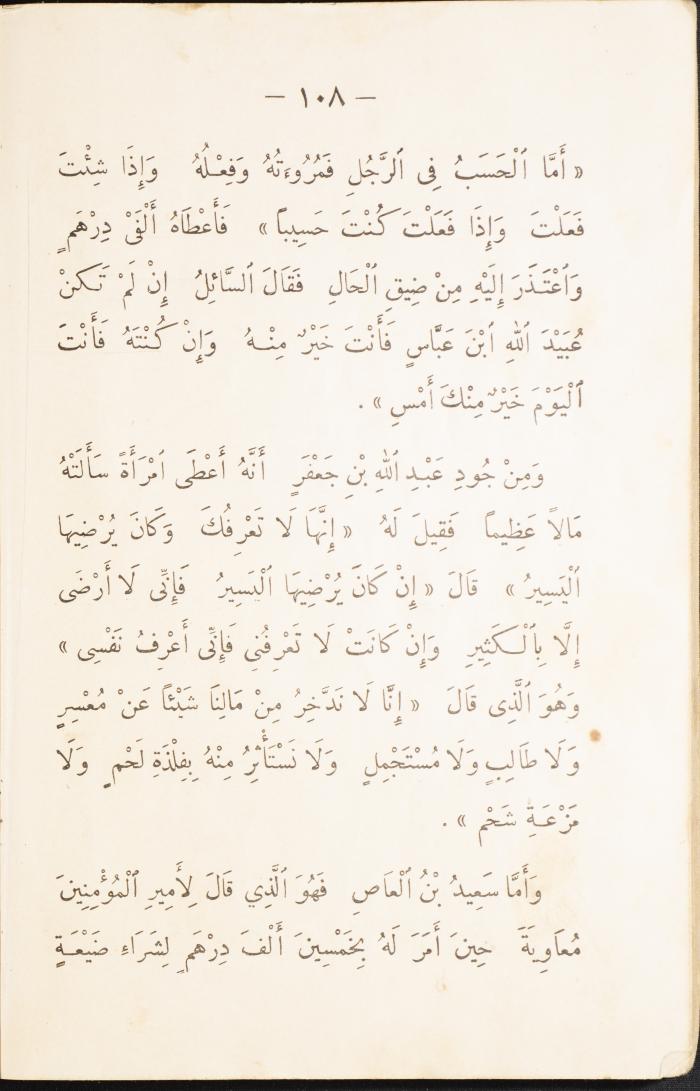 — ١٠٨ —
« أَمَّا ٱلْحَسَبُ فِى ٱلرَّجُلِ فَمُرُوءَتُهُ وَفِعْلُهُ وَإِذَا شِئْتَ
فَعَلْتَ وَإِذَا فَعَلْتَ كُنْتَ حَسِيباً » فَأَعْطَاهُ أَلْفَىْ دِرْهَمٍ
وَٱعْتَذَرَ إِلَيْهِ مِنْ ضِيقِ ٱلْحَالِ فَقَالَ ٱلسَّائِلُ إِنْ لَمْ تَكُنْ
عُبَيْدَ ٱللهِ ٱبْنَ عَبَّاسٍ فَأَنْتَ خَيْرٌ مِنْهُ وَإِنْ كُنْتَهُ فَأَنْتَ
ٱلْيَوْمَ خَيْرٌ مِنْكَ أَمْسِ » .
وَمِنْ جُودِ عَبْدِ ٱللهِ بْنِ جَعْفَرٍ أَنَّهُ أَعْطَى ٱمْرَأَةً سَأَلَتْهُ
مَالاً عَظِيماً فَقِيلَ لَهُ « إِنَّهَا لَا تَعْرِفُكَ وَكَانَ يُرْضِيهَا
ٱلْيَسِيرُ » قَالَ « إِنْ كَانَ يُرْضِيهَا ٱلْيَسِيرُ فَإِنِّى لَا أَرْضَى
إِلَّا بِٱلْكَثِيرِ وَإِنْ كَانَتْ لَا تَعْرِفُنِي فَإِنِّى أَعْرِفُ نَفْسِى »
وَهُوَ ٱلَّذِى قَالَ « إِنَّا لَا نَدَّخِرُ مِنْ مَالِنَا شَيْئاً عَنْ مُعْسِرٍ
وَلَا طَالِبٍ وَلَا مُسْتَجْمِلٍ وَلَا نَسْتَأْثِرُ مِنْهُ بِفِلْذَةِ لَحْمٍ وَلَا
مَزْعَةِ شَحْمٍ » .
وَأَمَّا سَعِيدُ بْنُ ٱلْعَاصِ فَهُوَ ٱلَّذِي قَالَ لِأَمِيرِ ٱلْمُؤْمِنِينَ
مُعَاوِيَةَ حِينَ أَمَرَ لَهُ بِخَمْسِينَ أَلْفَ دِرْهَمٍ لِشَرَاءِ ضَيْعَةٍ